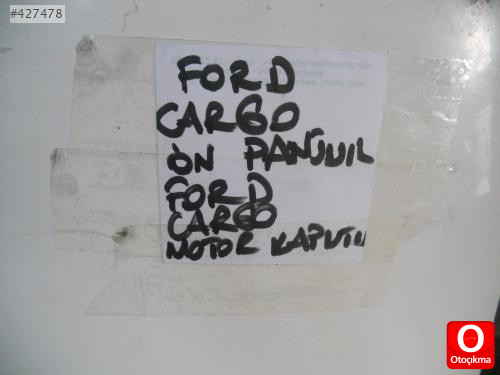 #427478
FORD
CARGO
ÖN PANJUIL
FORD
CARGO
MOTOR KAPUTU
Otoçıkma